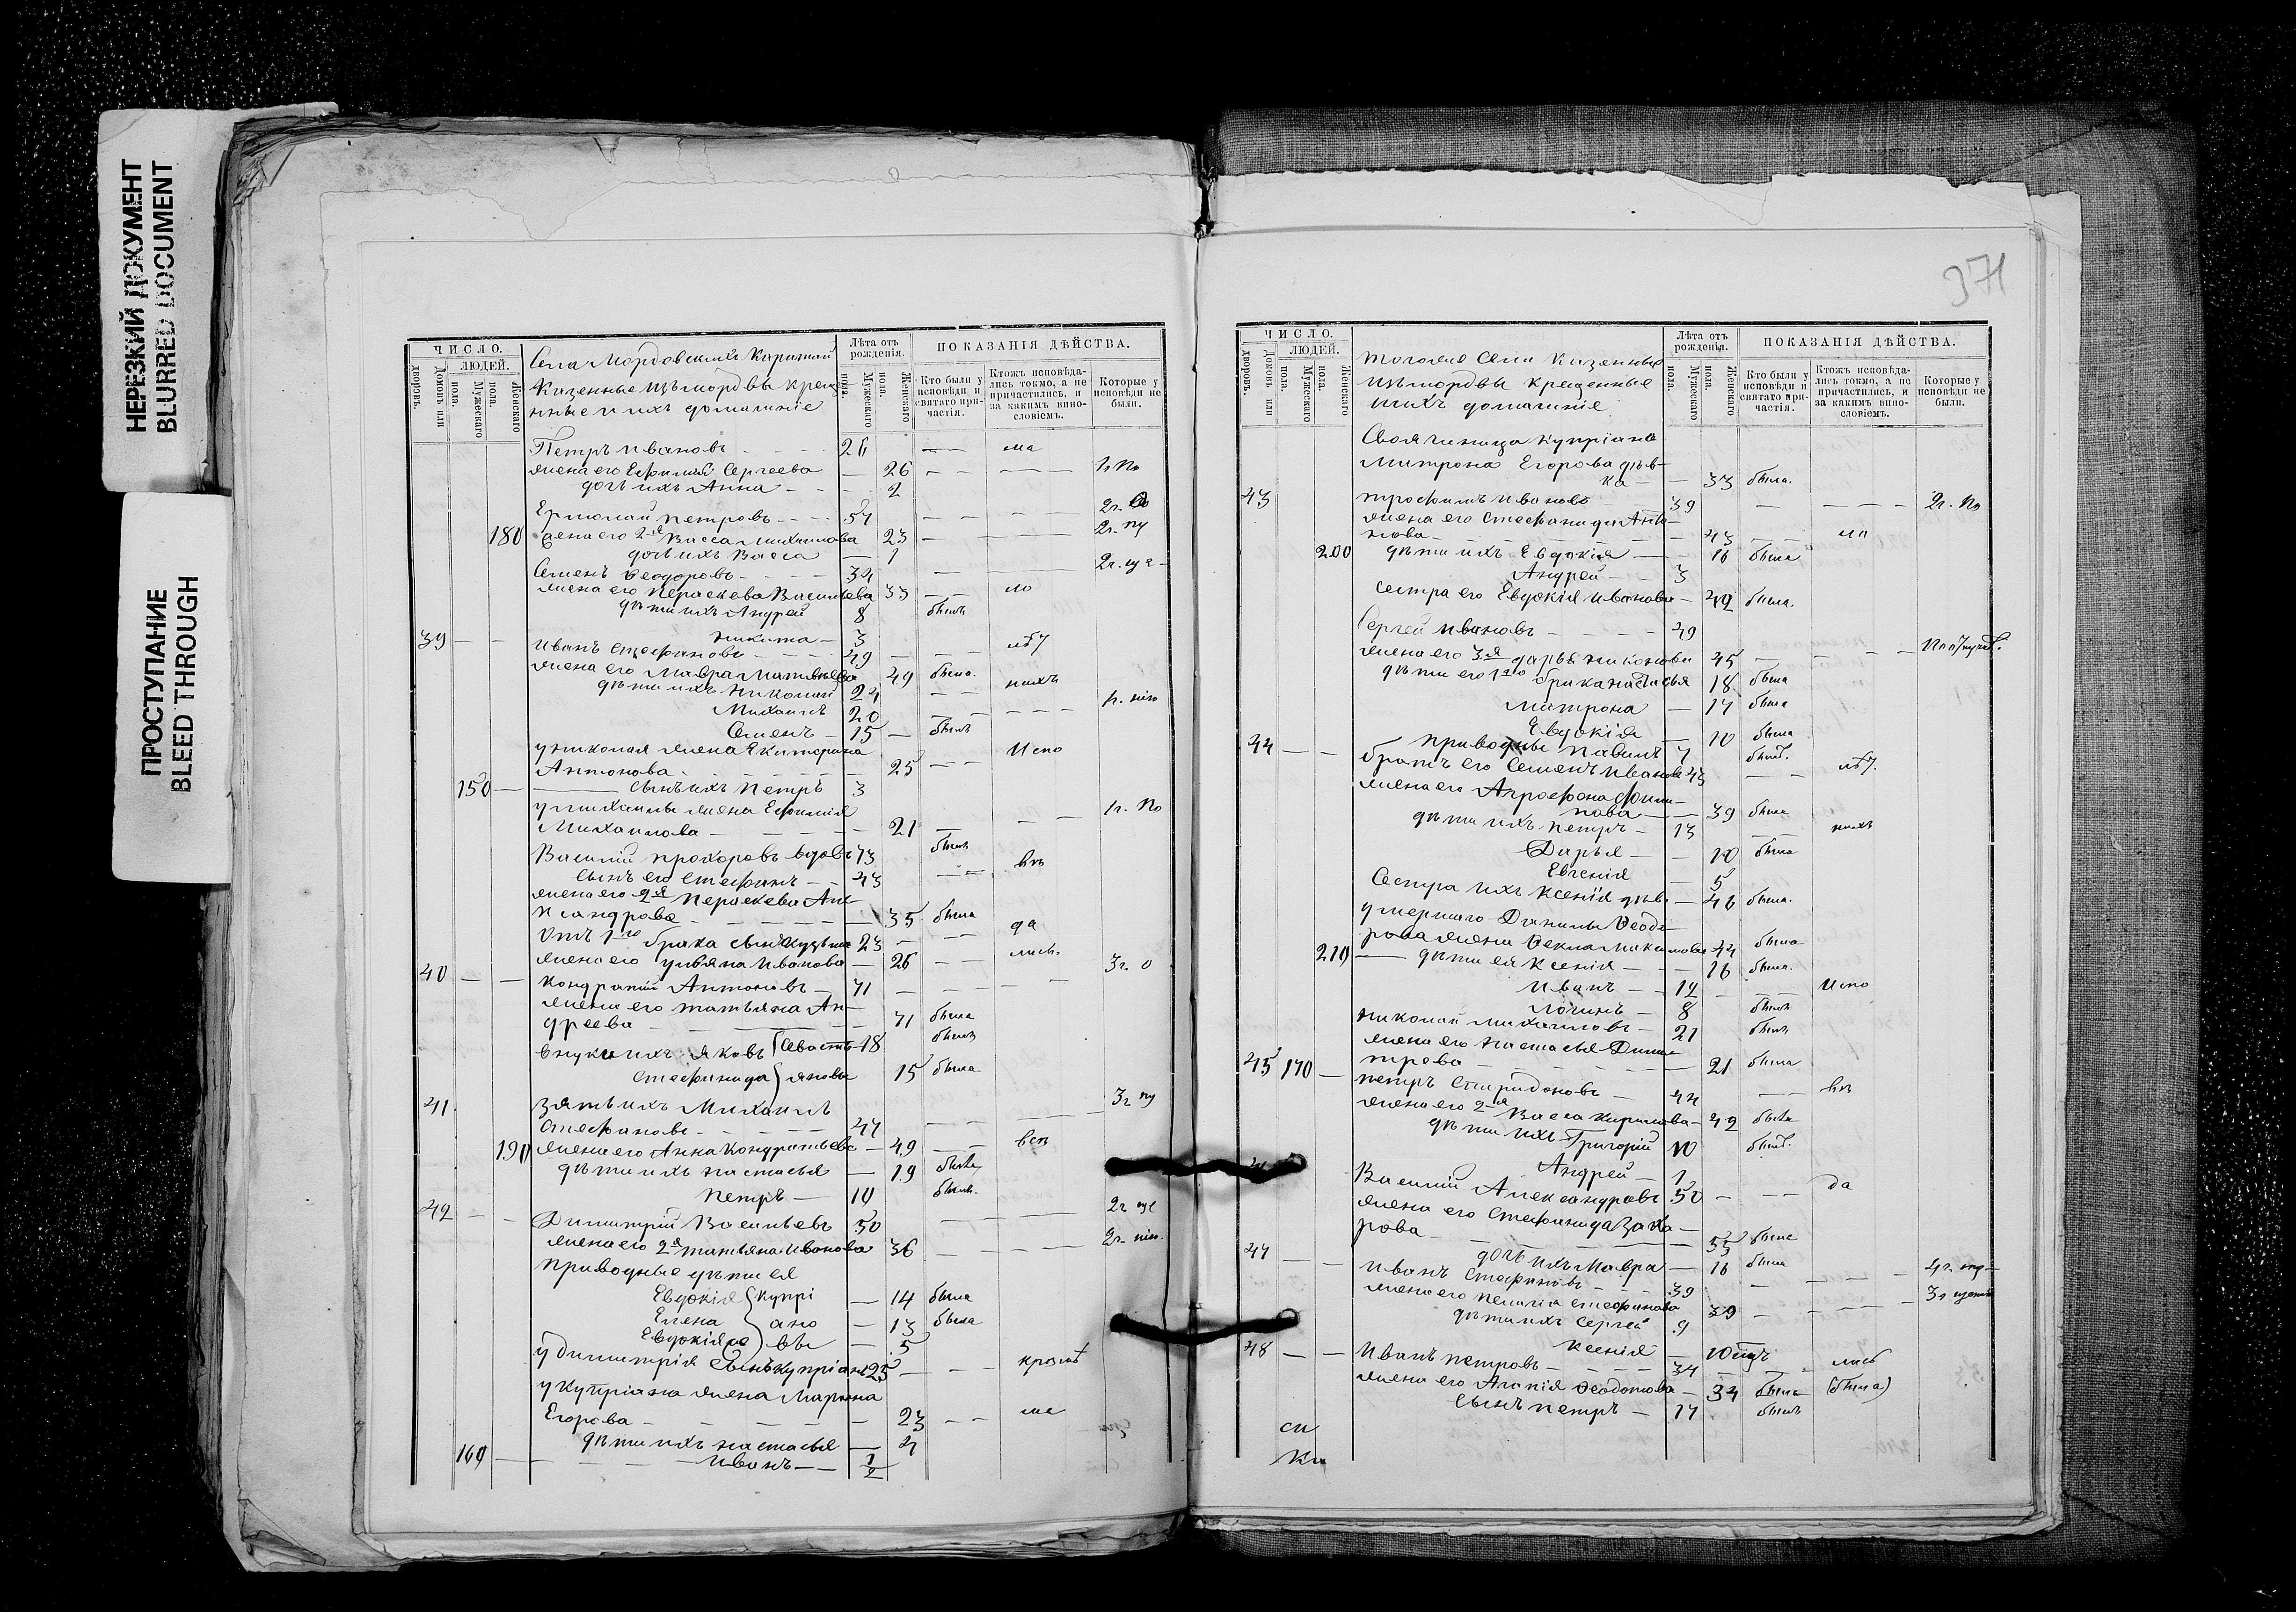 НЕРЕЗКИЙ ДОКУМЕНТ
BLURRED DOCUMENT
ПРОСТУПАНИЕ
BLEED THROUGH
ЧИСЛО.
ЛЮДЕЙ.
Домовъ или дворовъ.
Мужескаго пола.
Женскаго пола.
Села Мордовских
Казенные Изъ мордвы крещ
нные и ихъ домашнiе
Лѣта отъ рожденiя.
Мужескаго пола.
Женскаго пола.
ПОКАЗАНIЯ ДѢЙСТВА.
Кто были у исповѣди и святаго причастiя.
Ктожъ исповѣдались токмо, а не причастились, и за какимъ винословiемъ.
Которые у исповѣди не были.
Петръ Ивановъ 26 ма
жена его Ефимiя Сергеева 26 1г. По
дочь ихъ Анна 2
Ермолай Петровъ 54 2г.
180 жена его 2я Васса Михаилова 23 2г. пу
дочь ихъ Васса 1
Семенъ Ѳеодоровъ 34 2г. ще
жена его Параскева Васильева 33 ло
дѣти ихъ Андрей 8 былъ
Никита 3
39 Иванъ Стефановъ 49 лѣу
жена его Мавра Матвѣева 49 была
дѣти ихъ Николай 24 нихъ
Михаилъ 20 1г. нiю
Семенъ 15 былъ
у Николая жена Екатерина
Антонова 25 Испо
150 сынъ ихъ Петръ 3
у Михаилы жена Ефимiя
Михаилова 21 1г. По
Василiй Прохоровъ вдовъ 73 былъ
сынъ его Стефанъ 43 вѣ
жена его 2я Параскева Але
ксандрова 35 была
Отъ 1го брака сынъ Кузьма 23 да
жена его Ульяна Иванова 26 лись
40 Кондратiй Антоновъ 71 3г. о
жена его татьяна Ан
дреева 71 была
внуки ихъ Яковъ Севасть 18 былъ
Стефанида яновы 15 была
41 зять ихъ Михаилъ
Стефановъ 47 3г пу
190 жена его Анна Кондратьева 49 всѣ
дѣти ихъ Настасья 19 была
Петръ 10 былъ
42 Димитрiй Васильевъ 50 2г ще
жена его 2я татьяна Иванова 36 2г. нiю
приводные дѣти ея
Евдокiя Купрi 14 была
Елена ано 13 была
Евдокiя вы 5
у Димитрiя сынъ Купрiанъ 25 кромѣ
у Купрiана жена Марина
Егорова 23 ме
дѣти ихъ Настасья 4
160 Иванъ 1/2
371
ЧИСЛО.
ЛЮДЕЙ.
Домовъ или дворовъ.
Мужескаго пола.
Женскаго пола.
тогоже Села Казенные
Изъ мордвы крещенные
и ихъ домашнiе
Лѣта отъ рожденiя.
Мужескаго пола.
Женскаго пола.
ПОКАЗАНIЯ ДѢЙСТВА.
Кто были у исповѣди и святаго причастiя.
Ктожъ исповѣдались токмо, а не причастились, и за какимъ винословiемъ.
Которые у исповѣди не были.
Своячиница Куприана
Матрона Егорова дѣв-
ка 33 была.
43 трофимъ Ивановъ 39 2г. По
жена его Стефанида Анто-
нова 43
200 дѣти ихъ Евдокiя 16 была
Андрей 3
сестра его Евдокiя Иванова 42 была.
Сергей Ивановъ 49
жена его 3я дарья Никонова 45
дѣти его 1го брака Настасья 18 была
Матрона 17 была
Евдокiя 10 была
приводные Павелъ 7 былъ.
44 братъ его Семенъ Ивановъ 43 лѣу.
жена его Агрофена Фили-
пова 39 была
дѣти ихъ Петръ 13 нихъ
Дарья 10 была
Евгенiя 5
Сестра ихъ Ксенiя дѣв. 46 была.
умершаго Данилы Ѳеодо-
рова жена Ѳекла Максимова 44 была
210 дѣти ея Ксенiя 16 была.
Иванъ 12 Испо
Логинъ 8 былъ
Николай Михаиловъ 21 былъ
жена его Настасья Дими
трева 21 была
45 170 Петръ Спиридоновъ 44 вѣ
жена его 2я Васса Кирилова 42 была
дѣти ихъ Григорiй 10 былъ.
Андрей 1
Василiй Александровъ 50 да
жена его Стефанида Заха-
рова 55 была
дочь ихъ Мавра 16 была
47 Иванъ Стефановъ 39 4г.
жена его Пелагiя Стефанова 39
дѣти ихъ Сергей 9
Ксенiя 10
48 Иванъ Петровъ 34 лись
жена его Агапiя Ѳеодотова 34 была (была)
сынъ Петръ 17 былъ